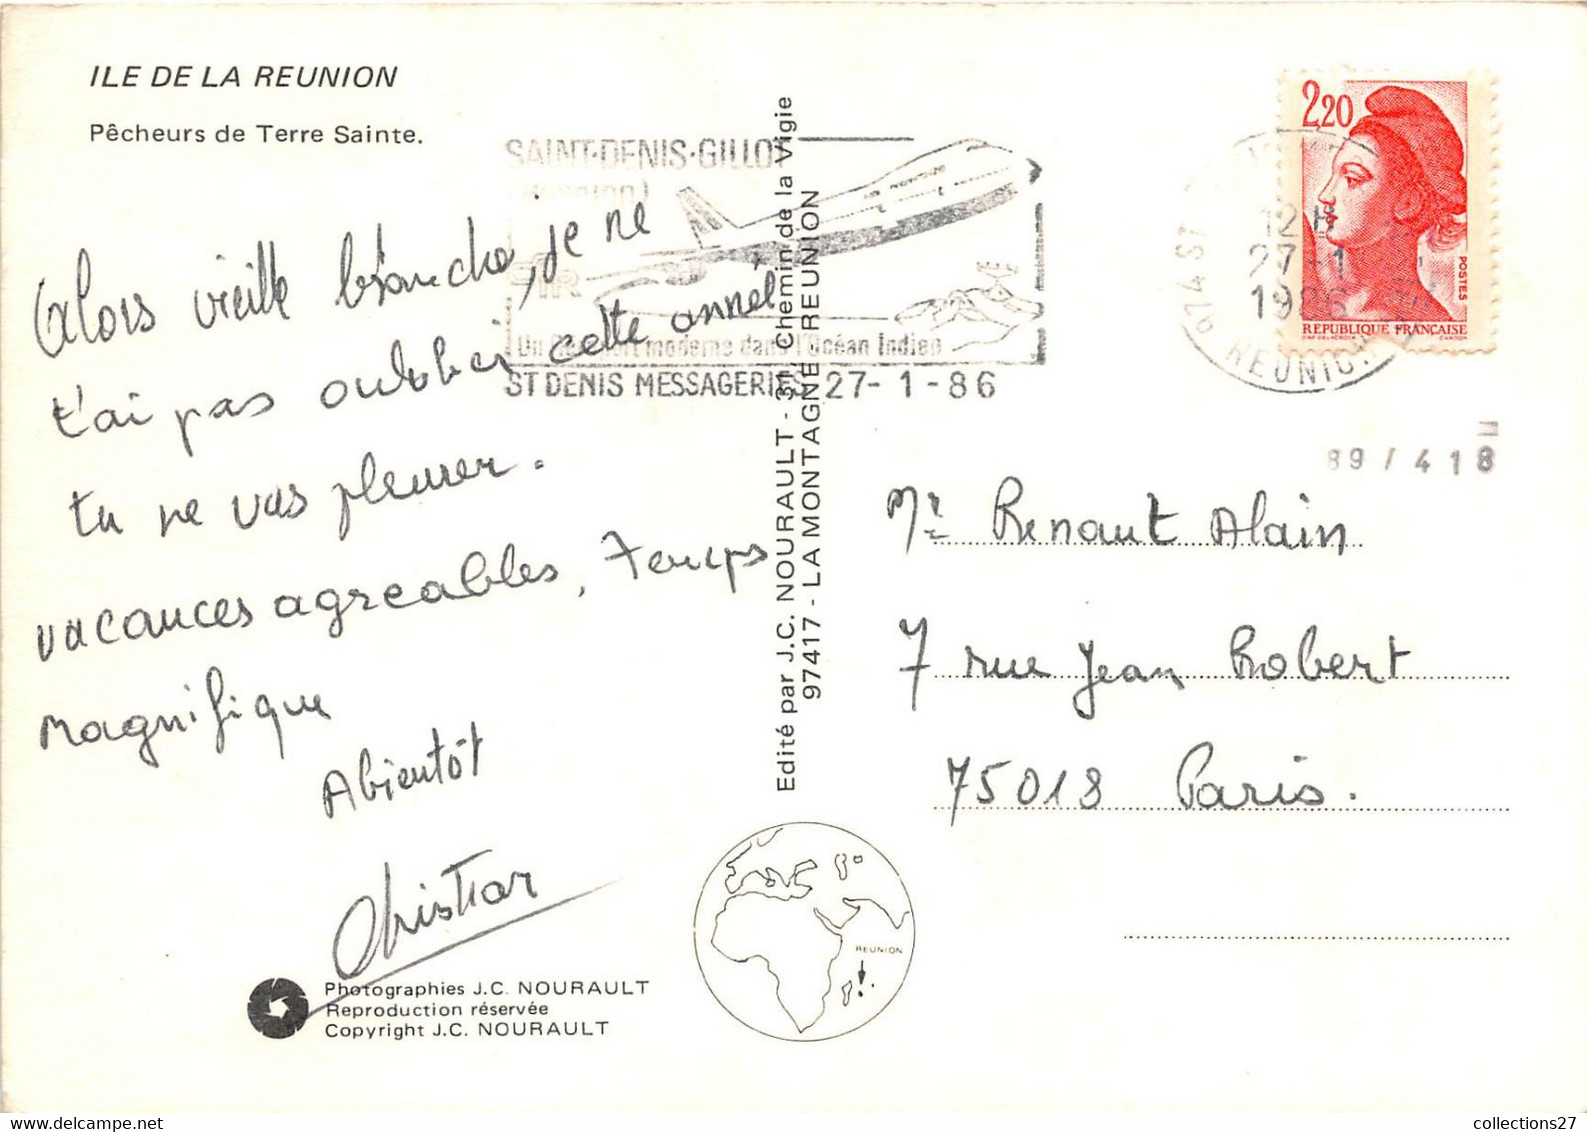 ILE DE LA REUNION
Pêcheurs de Terre Sainte.
SAINT-DENIS-GILLOT
(Réunion)
Un moderne dans l'Océan Indien
ST DENIS MESSAGERIES 27-1-86
2,20
POSTES
REPUBLIQUE FRANÇAISE
974 ST
12 H
27-1
1986
REUNION
89/418
Alors vieille branche, je ne
t'ai pas oublier cette année
tu ne vas pleurer.
vacances agreables, Temps
magnifique
Abientôt
Christian
Edité par J.C. NOURAULT - 31, Chemin de la Vigie
97417 - LA MONTAGNE - REUNION
Mr Renaut Alain
7 rue Jean Robert
75018 Paris.
REUNION
Photographies J.C. NOURAULT
Reproduction réservée
Copyright J.C. NOURAULT
collections27